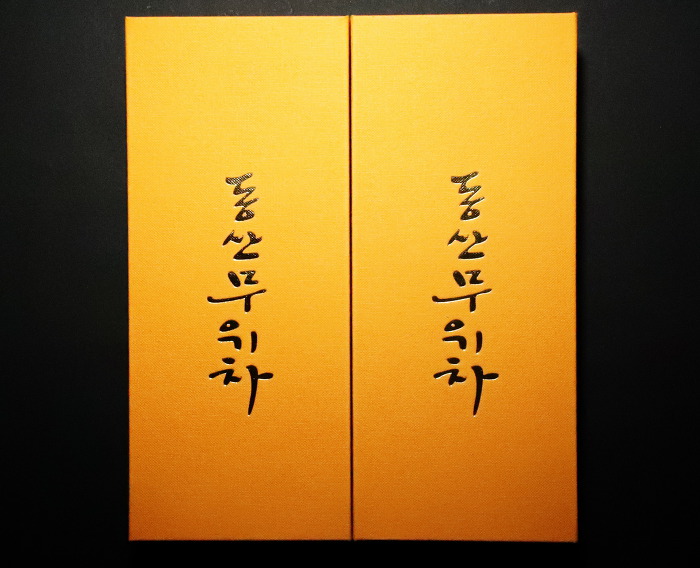 동산무위차
동산무위차